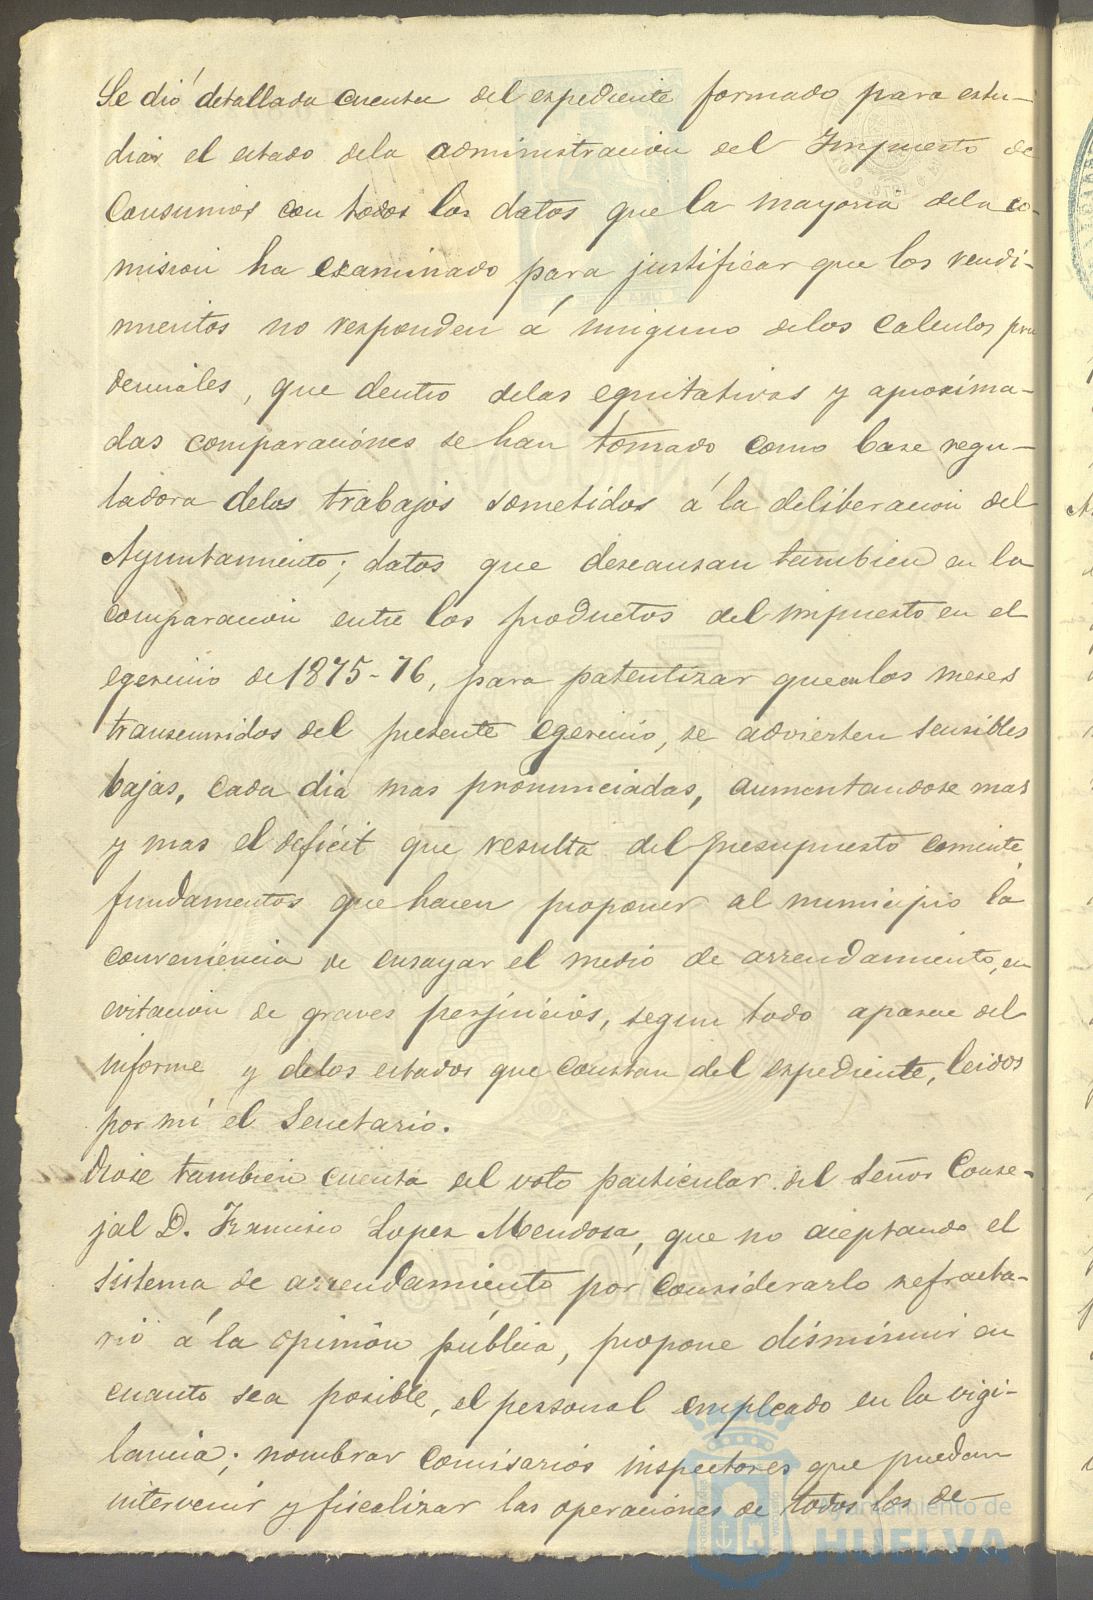 Se dió detallada cuenta del expediente formado para estu-
diar el estado dela administracion del Impuesto de
Consumos con todos los datos que la mayoria dela co-
mision ha examinado para justificar que los rendi-
mientos no responden á ninguno delos calculos pru
denciales, que dentro delas equitativas y aproxima-
das comparaciónes se han tomado como base regu-
ladora delos trabajos sometidos á la deliberacion del
Ayuntamiento; datos que descansan tambien en la
comparacion entre los productos del impuesto en el
egercicio de 1875-76, para patentizar que en los meses
transcurridos del presente egercicio, se advierten sensibles
bajas, cada dia mas pronunciadas, aumentandose mas
y mas el deficit que resulta del presupuesto corriente,
fundamentos que hacen proponer al municipio la
conveniencia de ensayar el medio de arrendamiento, en
evitacion de graves perjuicios, segun todo aparece del
informe y delos estados que constan del expediente, leidos
por mí el Secretario.
Diose tambien cuenta del voto particular del Señor Conse-
jal D. Francisco Lopez Mendosa, que no aceptando el
sistema de arrendamiento por considerarlo refracta-
rio á la opinión pública, propone disminuir en
cuanto sea posible, el personal empleado en la vigi-
lancia; nombrar Comisarios inspectores que puedan
intervenir y fiscalizar las operaciónes de todos los de-
Ayuntamiento de
HUELVA